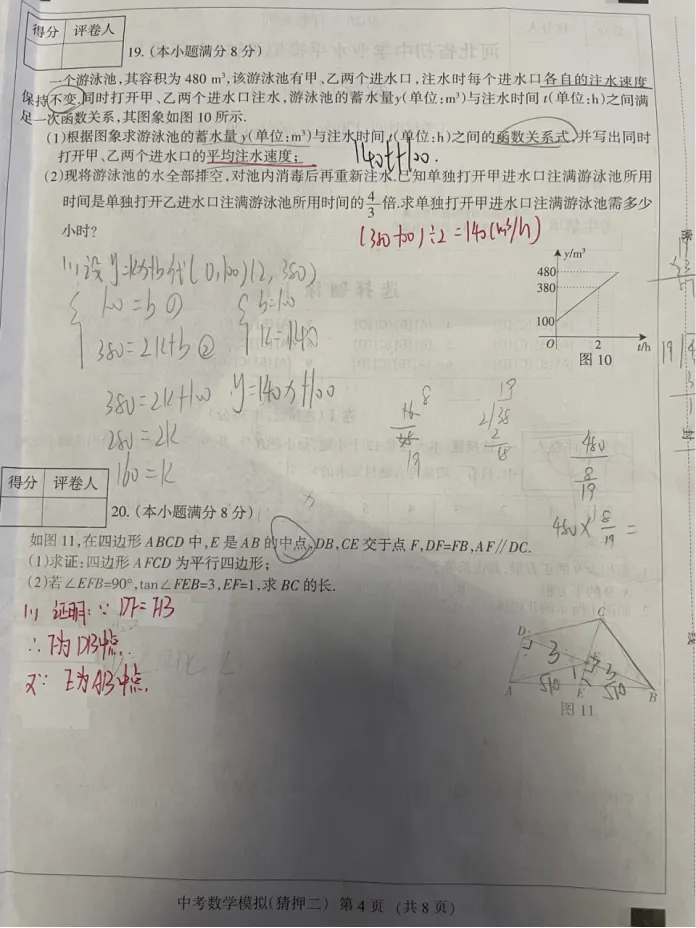 得分 评卷人
19.(本小题满分8分)
一个游泳池,其容积为480 m³,该游泳池有甲、乙两个进水口,注水时每个进水口各自的注水速度
保持不变.同时打开甲、乙两个进水口注水,游泳池的蓄水量y(单位:m³)与注水时间t(单位:h)之间满
足一次函数关系,其图象如图10所示.
(1)根据图象求游泳池的蓄水量y(单位:m³)与注水时间t(单位:h)之间的函数关系式,并写出同时
打开甲、乙两个进水口的平均注水速度;
140t+100.
(2)现将游泳池的水全部排空,对池内消毒后再重新注水.已知单独打开甲进水口注满游泳池所用
时间是单独打开乙进水口注满游泳池所用时间的4/3倍.求单独打开甲进水口注满游泳池需多少
小时?
(380-100)÷2=140(m³/h)
(1)设y=kx+b代(0,100)(2,380)
{100=b ① {b=100
380=2k+b ② k=140
380=2k+100 y=140x+100
280=2k
160=k
y/m³
480
380
100
O 2 t/h
图10
8
19
19
2/38
2
18
480
8
19
480×8/19=
得分 评卷人
20.(本小题满分8分)
如图11,在四边形ABCD中,E是AB的中点,DB,CE交于点F,DF=FB,AF∥DC.
(1)求证:四边形AFCD为平行四边形;
(2)若∠EFB=90°,tan∠FEB=3,EF=1,求BC的长.
(1) 证明:∵DF=FB
∴F为DB中点.
又∵E为AB中点.
C
D
3
F
1 3
A √10 E √10 B
图11
中考数学模拟(猜押二) 第4页 (共8页)